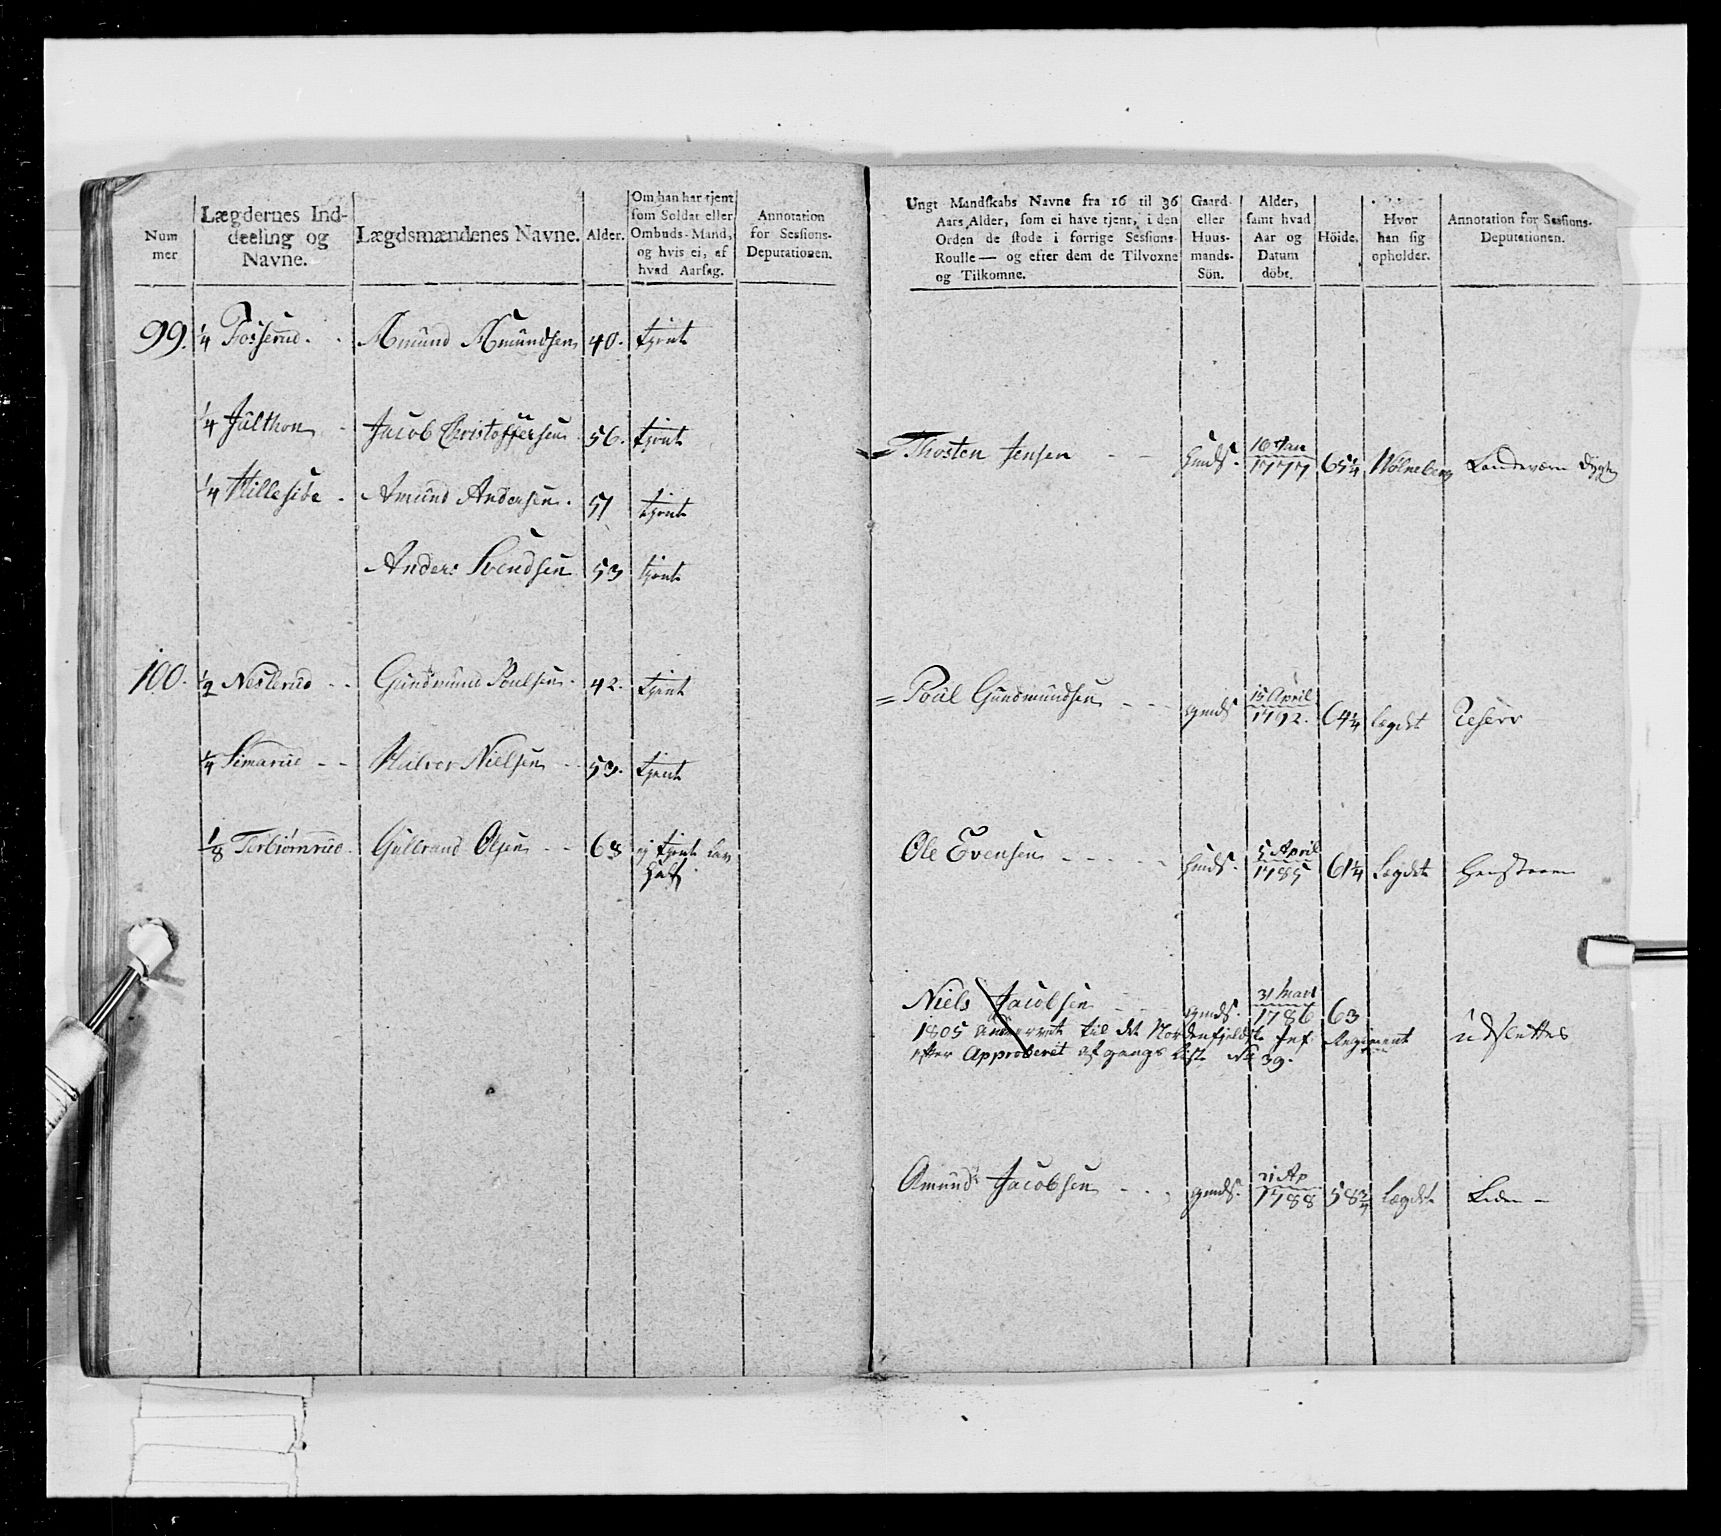 Num
mer
Lægdernes Ind-
deeling og
Navne.
Lægdsmændenes Navne.
Alder.
Om han har tjent
som Soldat eller
Ombuds-Mand,
og hvis ei, af
hvad Aarsag.
Annotation
for Sessions-
Deputationen.
99. 1/4 Fosserud. Amund Amundsen 40. tjent
1/4 Julthon Jacob Christoffersen 56. tjent
1/4 Hillesibe Amund Andersen. 51 tjent
Anders Svendsen 53 tjent
100. 1/2 Neslerud Gundmund Poulsen. 42. tjent
1/4 Simarud Halvor Nielsen 53. tjent
1/8 Torbiørnrud. Gulbrand Olsen 63 ej tjent
Ungt Mandskabs Navne fra 16 til 36
Aars Alder, som ei have tjent, i den
Orden de stode i forrige Sessions-
Roulle — og efter dem de Tilvoxne
og Tilkomne.
Gaard-
eller
Huus-
mands-
Sön.
Alder,
samt hvad
Aar og
Datum
döbt.
Höide.
Hvor
han sig
opholder.
Annotation for Sessions-
Deputationen.
= Thosten Jensen huds. 16 Jan 1777 65 1/4 Landeværn
= Poul Gundmundsen gmds 15 April 1792. 64 1/4 Lægdet Reserv
Ole Evensen huds. 5 April 1785 61 1/4 Lægdet
Niels Jacobsen gmds. 31 Mart 1786 63
1805 til det Nordenfjeldske Inf Regiment udslettes
efter Approberet afgangs Liste No 39.
Amund Jacobsen gmds. 21 Ap 1788 58 3/4 Lægdet Liden